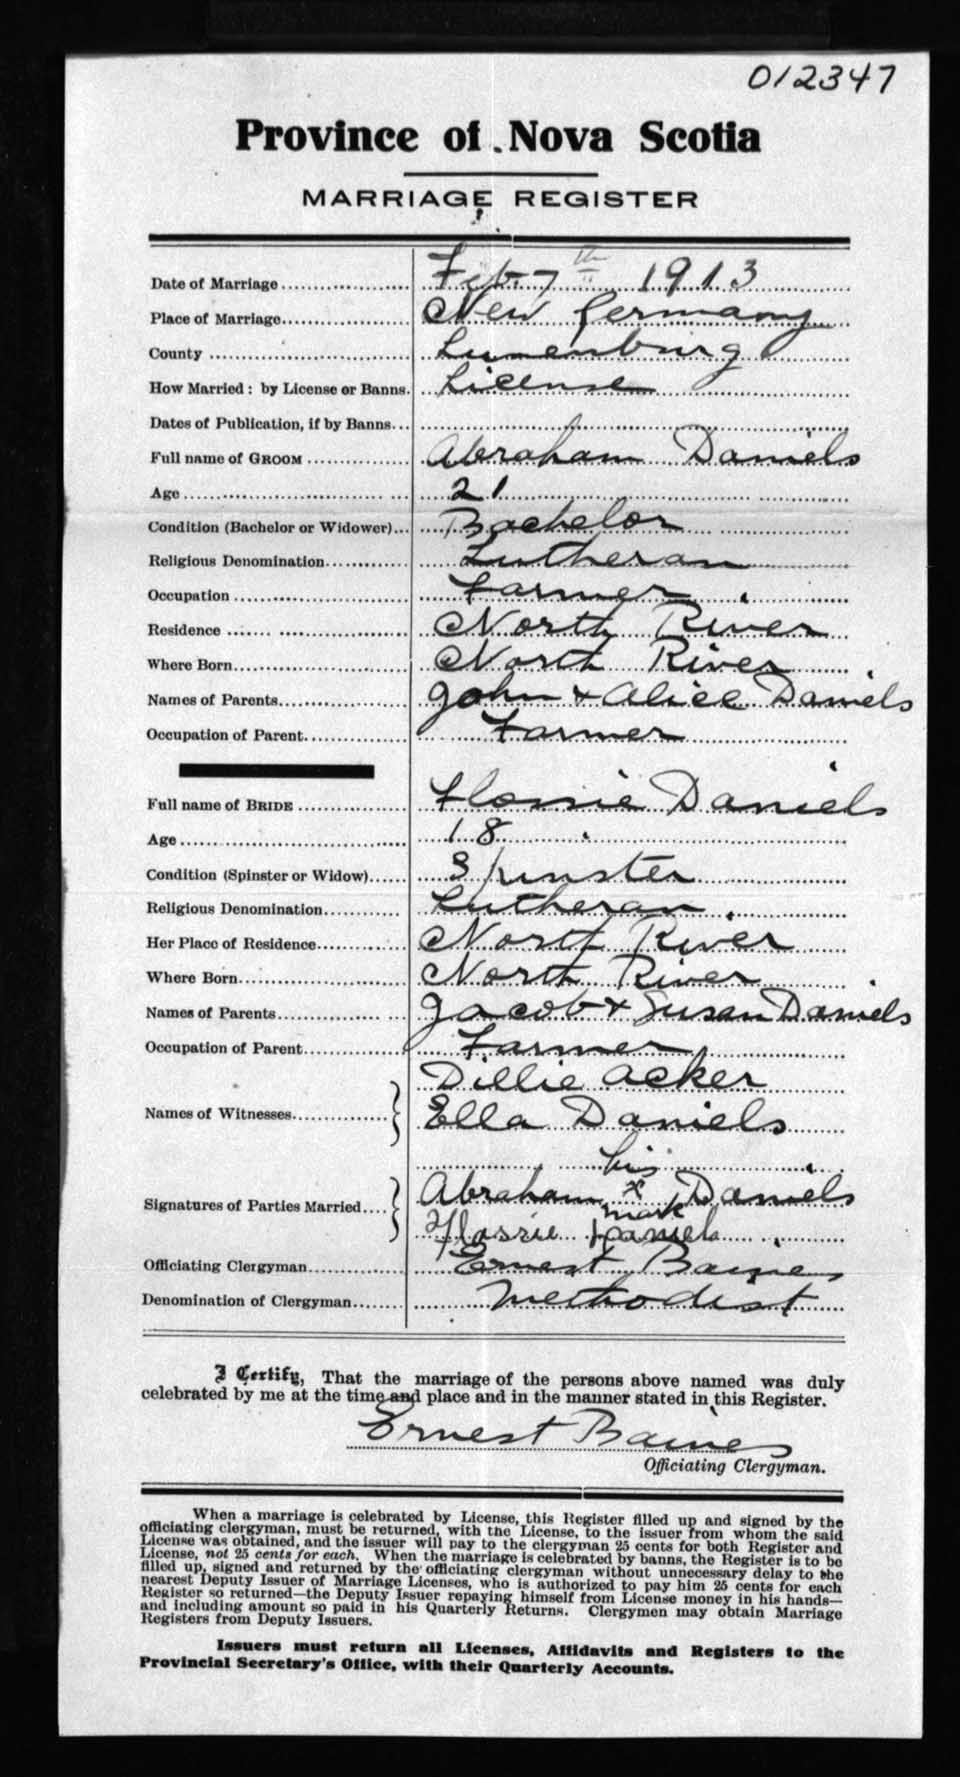 012347
Province of Nova Scotia
MARRIAGE REGISTER
Date of Marriage Feb 7th 1913
Place of Marriage New Germany
County Lunenburg
How Married: by License or Banns. License
Dates of Publication, if by Banns
Full name of GROOM Abraham Daniels
Age 21
Condition (Bachelor or Widower) Bachelor
Religious Denomination Lutheran
Occupation Farmer
Residence North River
Where Born North River
Names of Parents John & Alice Daniels
Occupation of Parent Farmer
Full name of BRIDE Flossie Daniels
Age 18
Condition (Spinster or Widow) Spinster
Religious Denomination Lutheran
Her Place of Residence North River
Where Born North River
Names of Parents Jacob & Susan Daniels
Occupation of Parent Farmer
Dillie Acker
Names of Witnesses Ella Daniels
his
Signatures of Parties Married Abraham x Daniels
mark
Flossie Daniels
Officiating Clergyman Ernest Baines
Denomination of Clergyman Methodist
I Certify, That the marriage of the persons above named was duly
celebrated by me at the time and place and in the manner stated in this Register.
Ernest Baines
Officiating Clergyman.
When a marriage is celebrated by License, this Register filled up and signed by the
officiating clergyman, must be returned, with the License, to the issuer from whom the said
License was obtained, and the issuer will pay to the clergyman 25 cents for both Register and
License, not 25 cents for each. When the marriage is celebrated by banns, the Register is to be
filled up, signed and returned by the officiating clergyman without unnecessary delay to the
nearest Deputy Issuer of Marriage Licenses, who is authorized to pay him 25 cents for each
Register so returned—the Deputy Issuer repaying himself from License money in his hands—
and including amount so paid in his Quarterly Returns. Clergymen may obtain Marriage
Registers from Deputy Issuers.
Issuers must return all Licenses, Affidavits and Registers to the
Provincial Secretary's Office, with their Quarterly Accounts.